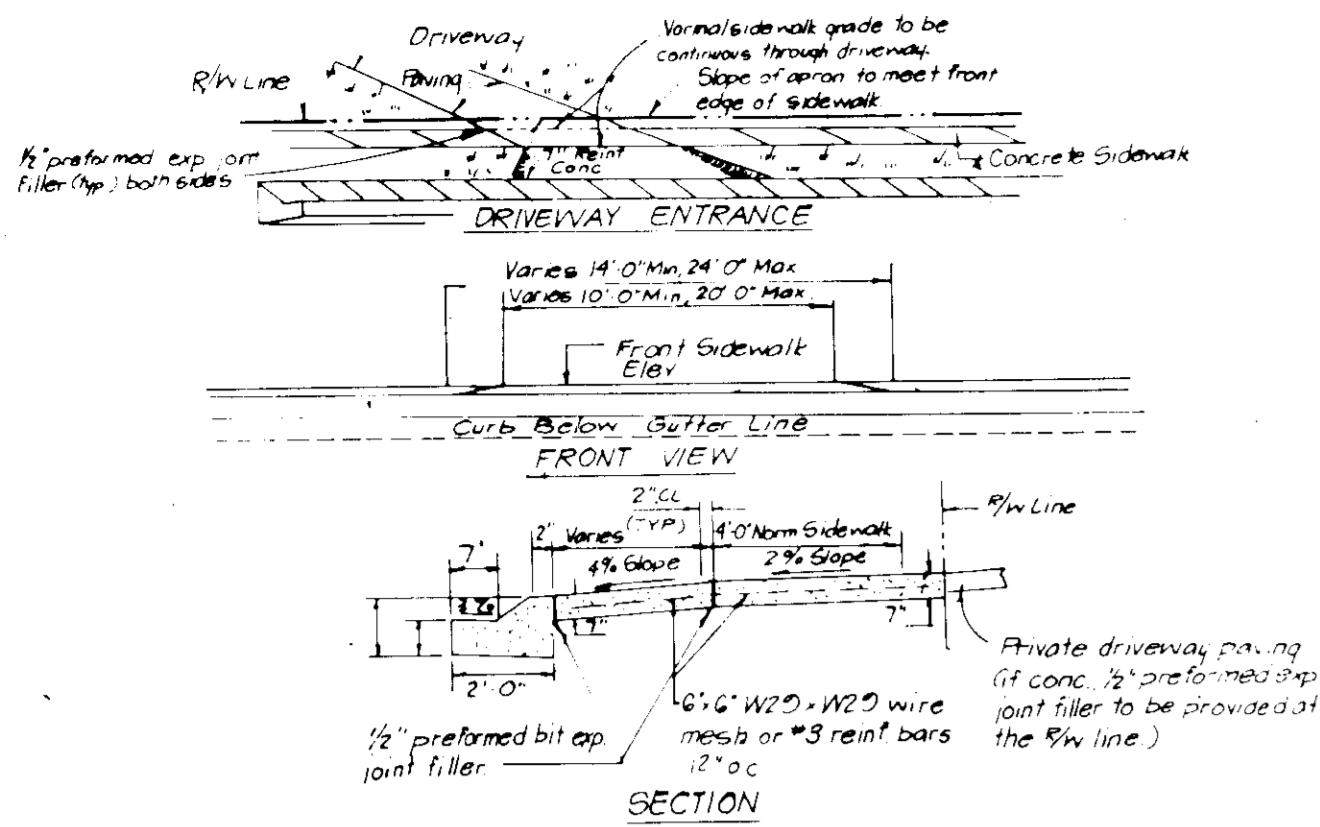 Driveway
Paving
R/W Line
Normal sidewalk grade to be
continuous through driveway.
Slope of apron to meet front
edge of sidewalk.
1/2" preformed exp joint
filler (typ.) both sides
7" Reint
Conc
Concrete Sidewalk
DRIVEWAY ENTRANCE
Varies 14'-0" Min, 24'-0" Max
Varies 10'-0" Min, 20'-0" Max
Front Sidewalk
Elev
Curb Below Gutter Line
FRONT VIEW
2" CL
(TYP)
R/W Line
2"
Varies
4'-0" Norm Sidewalk
7"
4% Slope
2% Slope
7"
7"
2'-0"
1/2" preformed bit exp.
joint filler.
6"x6" W29 x W29 wire
mesh or #3 reinf. bars
12" o c
Private driveway paving
(if conc., 1/2" preformed exp
joint filler to be provided at
the R/W line.)
SECTION